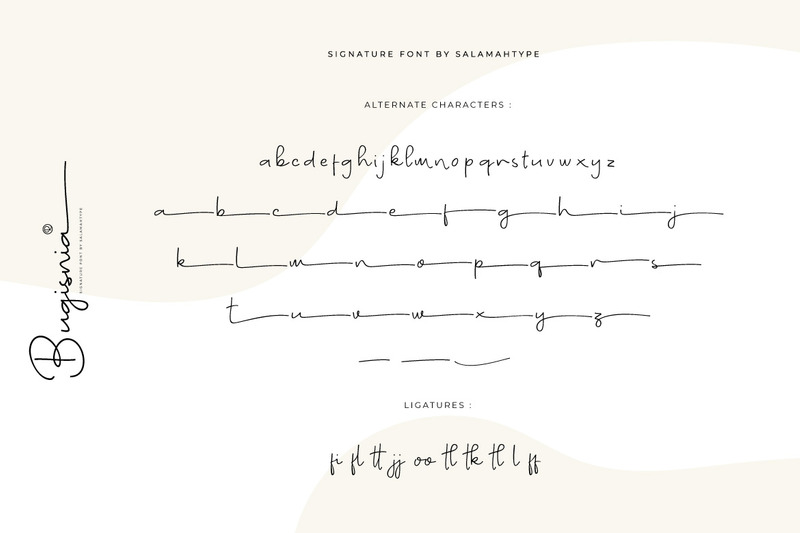 SIGNATURE FONT BY SALAMAHTYPE
ALTERNATE CHARACTERS :
abcdefghijklmnopqrstuvwxyz
a b c d e f g h i j
k l m n o p q r s
t u v w x y z
Bugisnia
SIGNATURE FONT BY SALAMAHTYPE
LIGATURES :
fi fl tt jj oo tl tk tl l ff